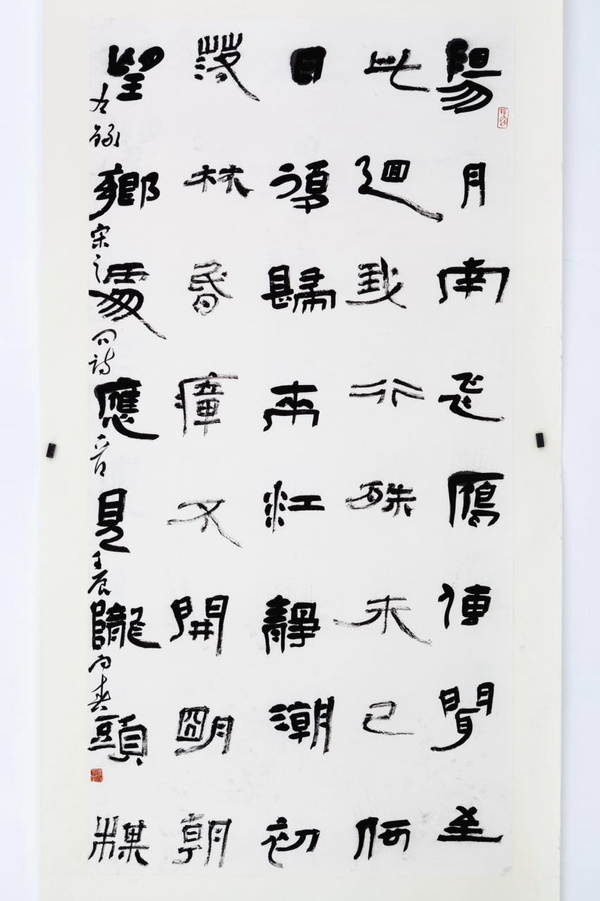 陽月南飛鴈傳聞至
此迴我行殊未已何
日復歸來江靜潮初
落林昏瘴不開朙朝
望鄉處應見隴頭楳
右錄宋之問詩一首壬辰春